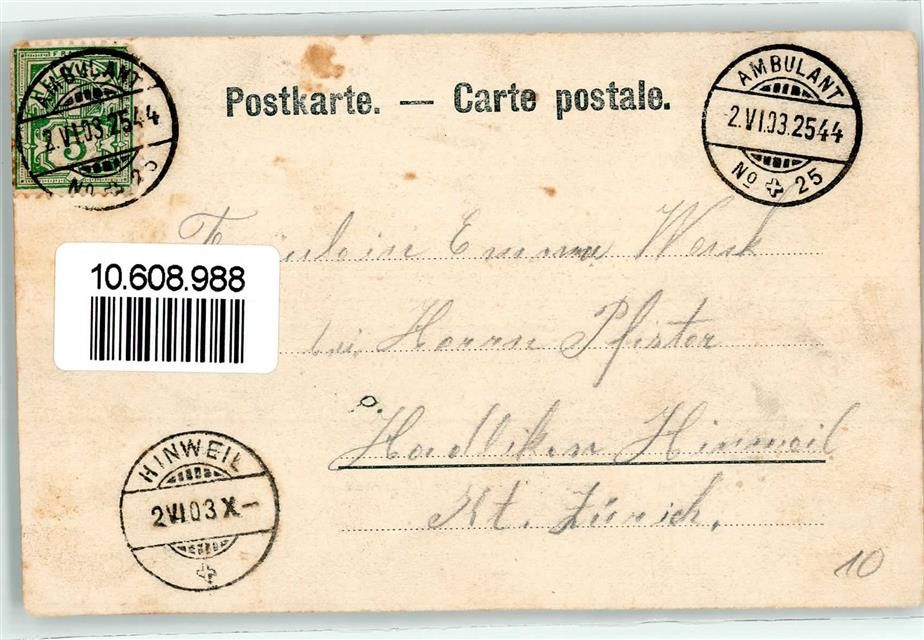 AMBULANT
2.VI.03.2544
No 25
5
Postkarte. — Carte postale.
AMBULANT
2.VI.03.2544
No 25
Fräulein Emma
10.608.988
bei Herrn Pfister
Hadlikon Hinweil
Kt. Zürich.
HINWEIL
2VI03 X-
10